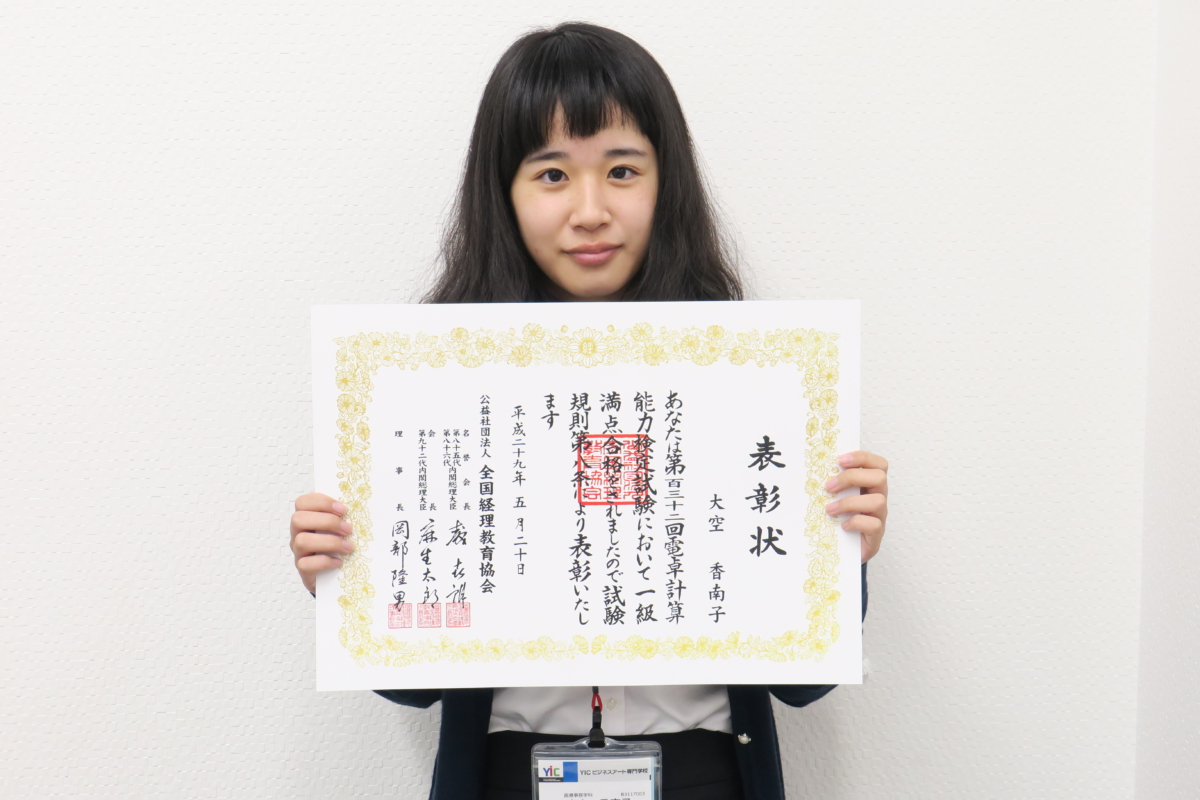 表彰状
大空 香南子
あなたは第百三十二回電卓計算
能力検定試験において一級
満点合格をされましたので試験
規則第八条により表彰いたし
ます
平成二十九年 五月二十日
公益社団法人 全国経理教育協会
名誉会長
第八十五代内閣総理大臣
第八十六代
会長
第九十二代内閣総理大臣 麻生太郎
理事長 岡部隆男
YIC YICビジネスアート専門学校
医療事務学科